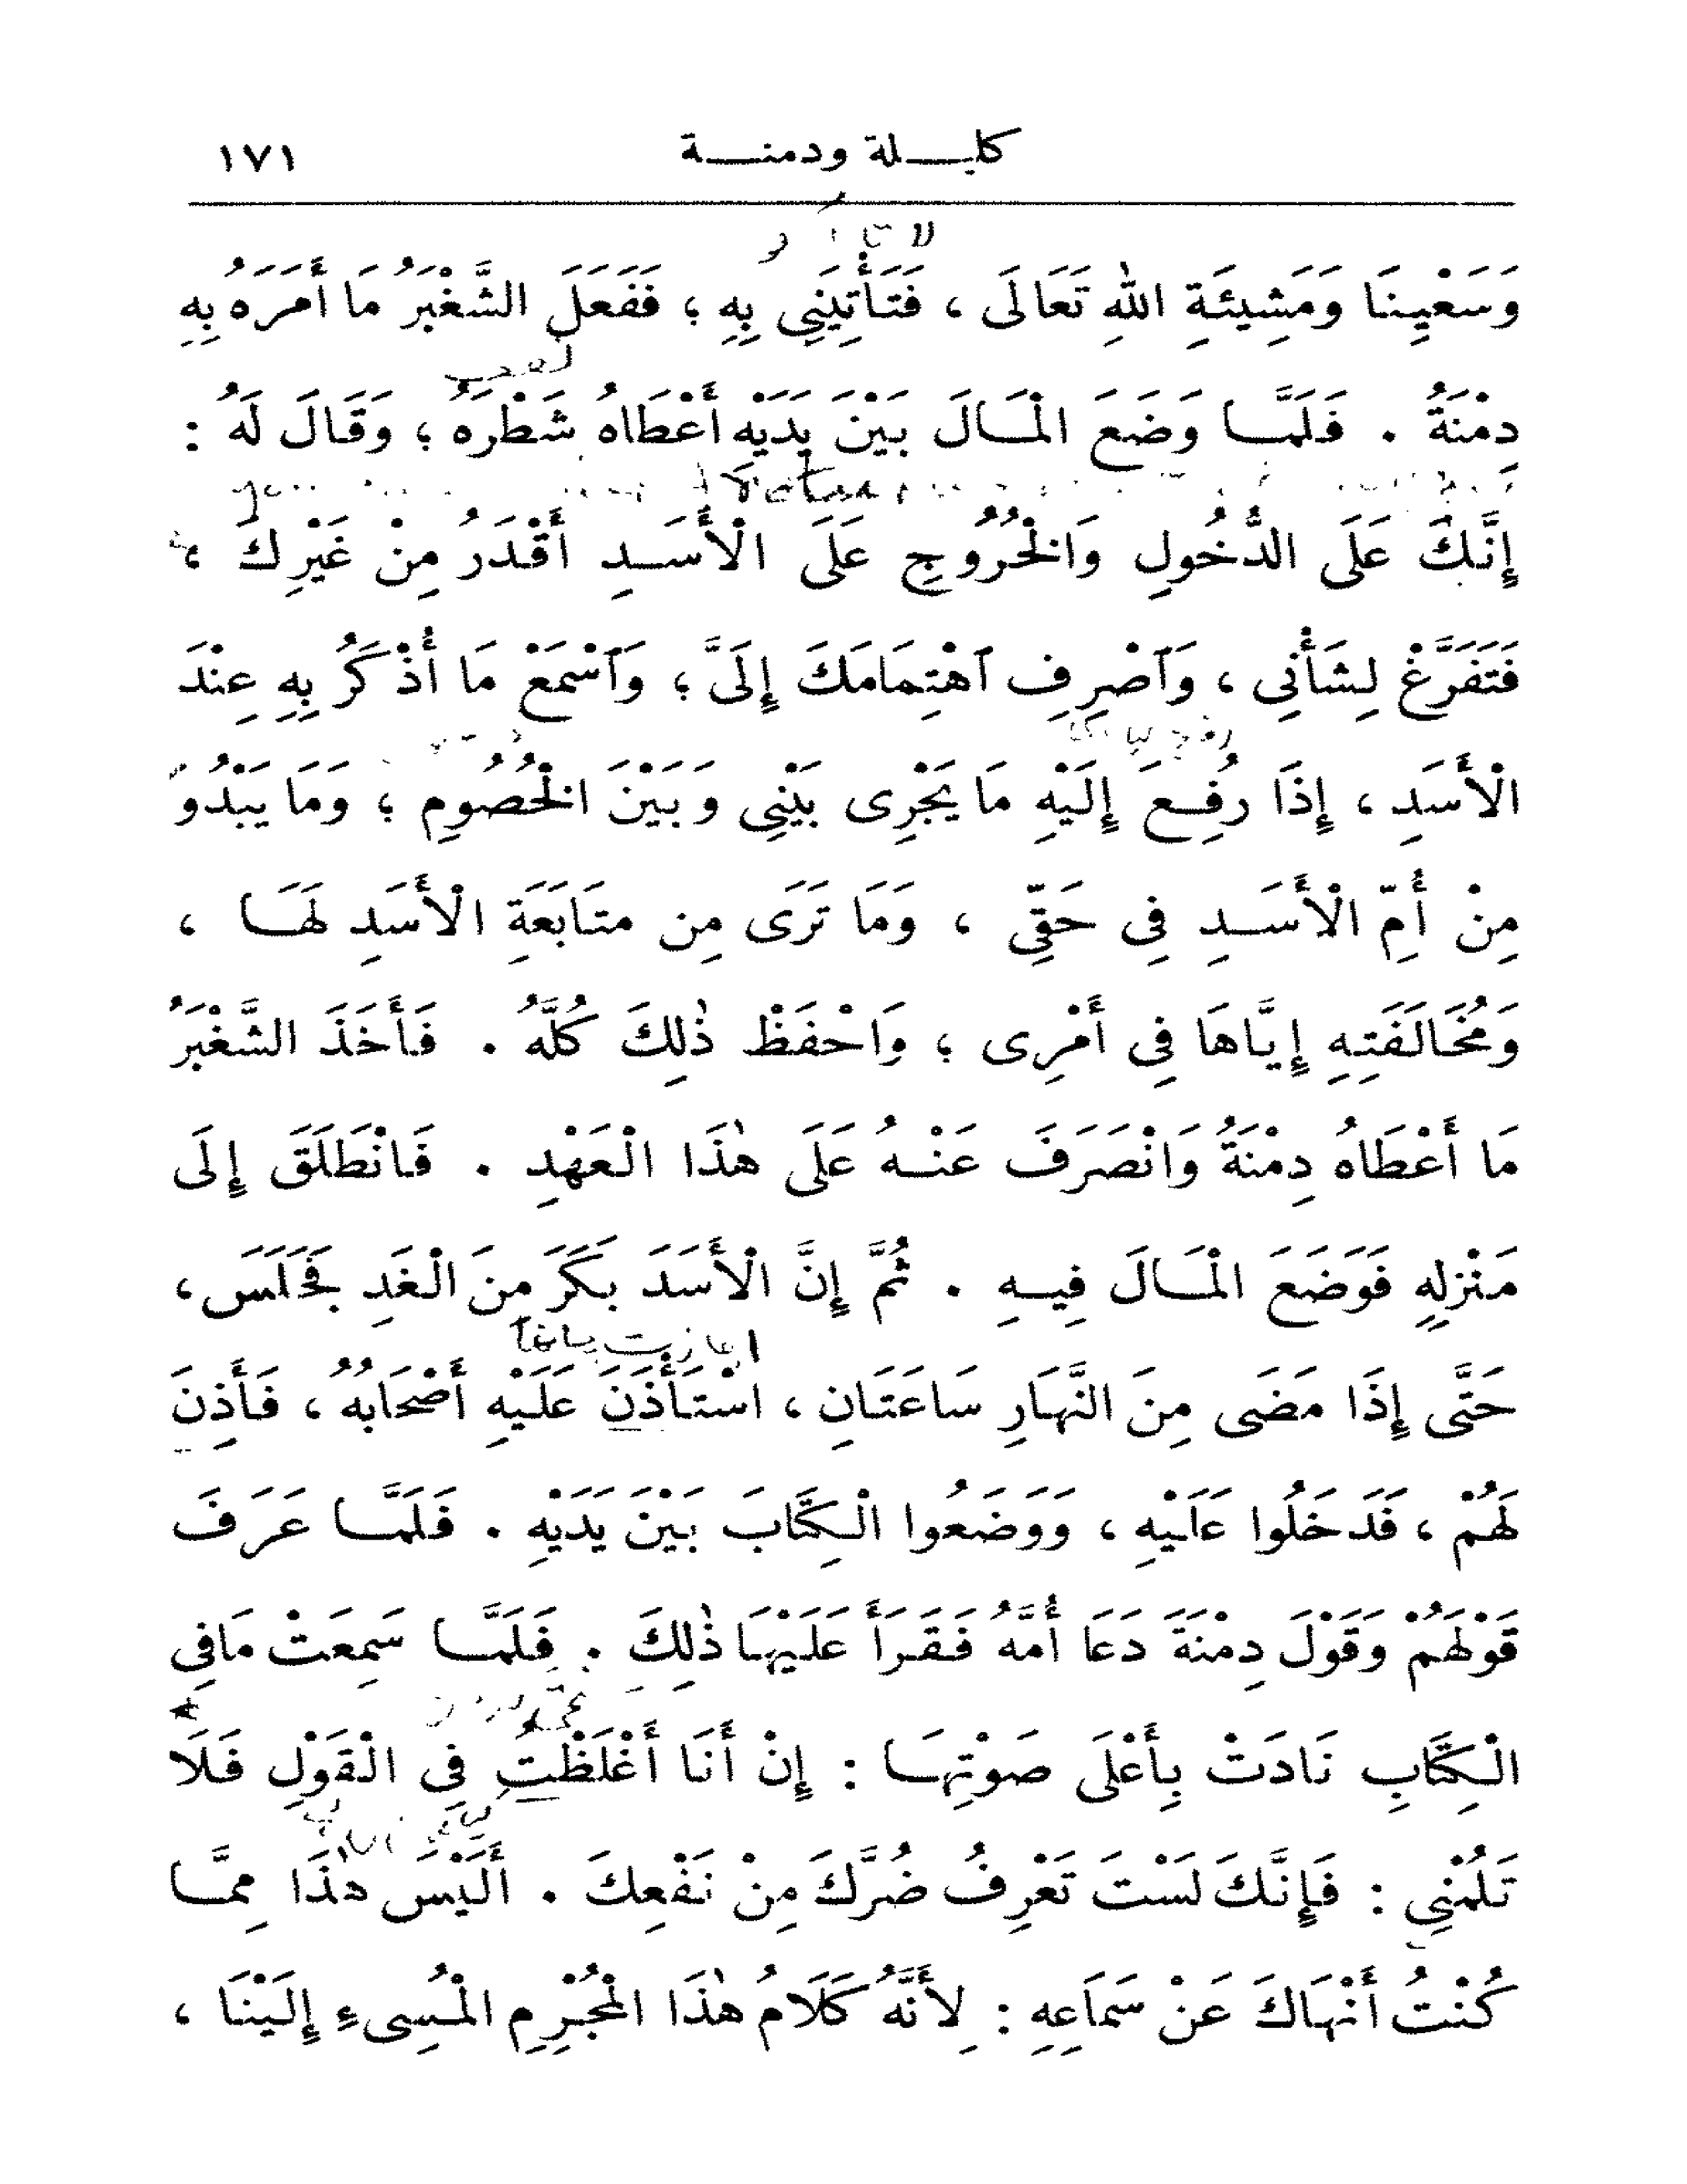 كليلة ودمنة
١٧١
وَسَعْيِنَا وَمَشِيئَةِ اللهِ تَعَالَى ، فَتَأْتِيَنِى بِهِ ؛ فَفَعَلَ الشَّغْبَرُ مَا أَمَرَهُ بِهِ
دِمْنَةُ . فَلَمَّا وَضَعَ الْمَالَ بَيْنَ يَدَيْهِ أَعْطَاهُ شَطْرَهُ ؛ وَقَالَ لَهُ :
إِنَّكَ عَلَى الدُّخُولِ وَالْخُرُوجِ عَلَى الْأَسَدِ أَقْدَرُ مِنْ غَيْرِكَ ،
فَتَفَرَّغْ لِشَأْنِى ، وَٱصْرِفِ ٱهْتِمَامَكَ إِلَىَّ ؛ وَٱسْمَعْ مَا أُذْكَرُ بِهِ عِنْدَ
الْأَسَدِ ، إِذَا رُفِعَ إِلَيْهِ مَا يَجْرِى بَيْنِى وَبَيْنَ الْخُصُومِ ؛ وَمَا يَبْدُو
مِنْ أُمِّ الْأَسَدِ فِى حَقِّى ، وَمَا تَرَى مِن متَابَعَةِ الْأَسَدِ لَهَا ،
وَمُخَالَفَتِهِ إِيَّاهَا فِى أَمْرِى ؛ وَاحْفَظْ ذٰلِكَ كُلَّهُ . فَأَخَذَ الشَّغْبَرُ
مَا أَعْطَاهُ دِمْنَةُ وَانْصَرَفَ عَنْهُ عَلَى هٰذَا الْعَهْدِ . فَانْطَلَقَ إِلَى
مَنْزِلِهِ فَوَضَعَ الْمَالَ فِيهِ . ثُمَّ إِنَّ الْأَسَدَ بَكَرَ مِنَ الْغَدِ فَجَلَسَ،
حَتَّى إِذَا مَضَى مِنَ النَّهَارِ سَاعَتَانِ ، اسْتَأْذَنَ عَلَيْهِ أَصْحَابُهُ ، فَأَذِنَ
لَهُمْ ، فَدَخَلُوا عَلَيْهِ ، وَوَضَعُوا الْكِتَابَ بَيْنَ يَدَيْهِ . فَلَمَّا عَرَفَ
قَوْلَهُمْ وَقَوْلَ دِمْنَةَ دَعَا أُمَّهُ فَقَرَأَ عَلَيْهَا ذٰلِكَ . فَلَمَّا سَمِعَتْ مَافِى
الْكِتَابِ نَادَتْ بِأَعْلَى صَوْتِهَا : إِنْ أَنَا أَغْلَظْتُ فِى الْقَوْلِ فَلَا
تَلُمْنِى : فَإِنَّكَ لَسْتَ تَعْرِفُ ضُرَّكَ مِنْ نَفْعِكَ . أَلَيْسَ هٰذَا مِمَّا
كُنْتُ أَنْهَاكَ عَنْ سَمَاعِهِ : لِأَنَّهُ كَلَامُ هٰذَا الْمُجْرِمِ الْمُسِىءِ إِلَيْنَا ،